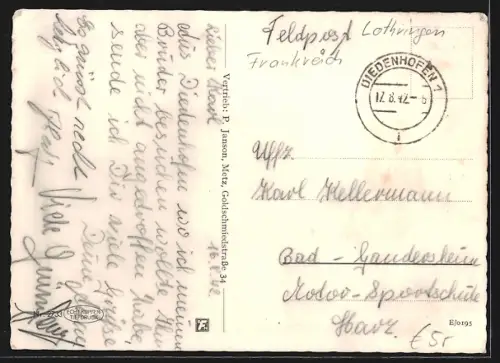 Feldpost Lothringen
Frankreich
DIEDENHOFEN 1
17.8.42.-8
Uffz.
Karl Kellermann
Bad-Gandersheim
Motor-Sportschule
Harz.
£5r
EJ0195
Vertrieb: P. Janson, Metz, Goldschmiedstraße 34
16.8.42
Lieber Karl
Aus Diedenhofen wo ich meinen
Bruder besuchen wollte
aber nicht angetroffen habe,
sende ich Dir viele Grüße
Deine
Es grüßt recht
herzlich
Viele
Nr. 2233